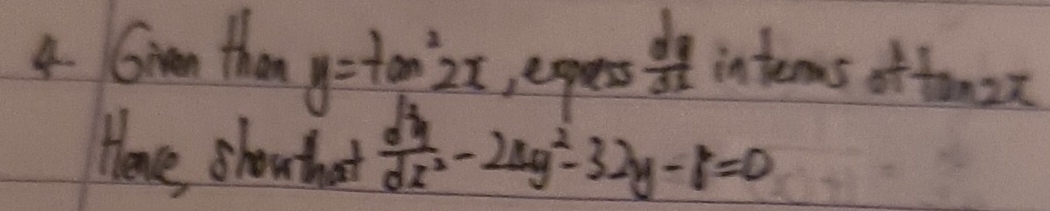 4. Given than y = tan²2x, express dy/dx in terms of tan2x
Hence, show that d²y/dx² - 24y² - 32y - 8 = 0